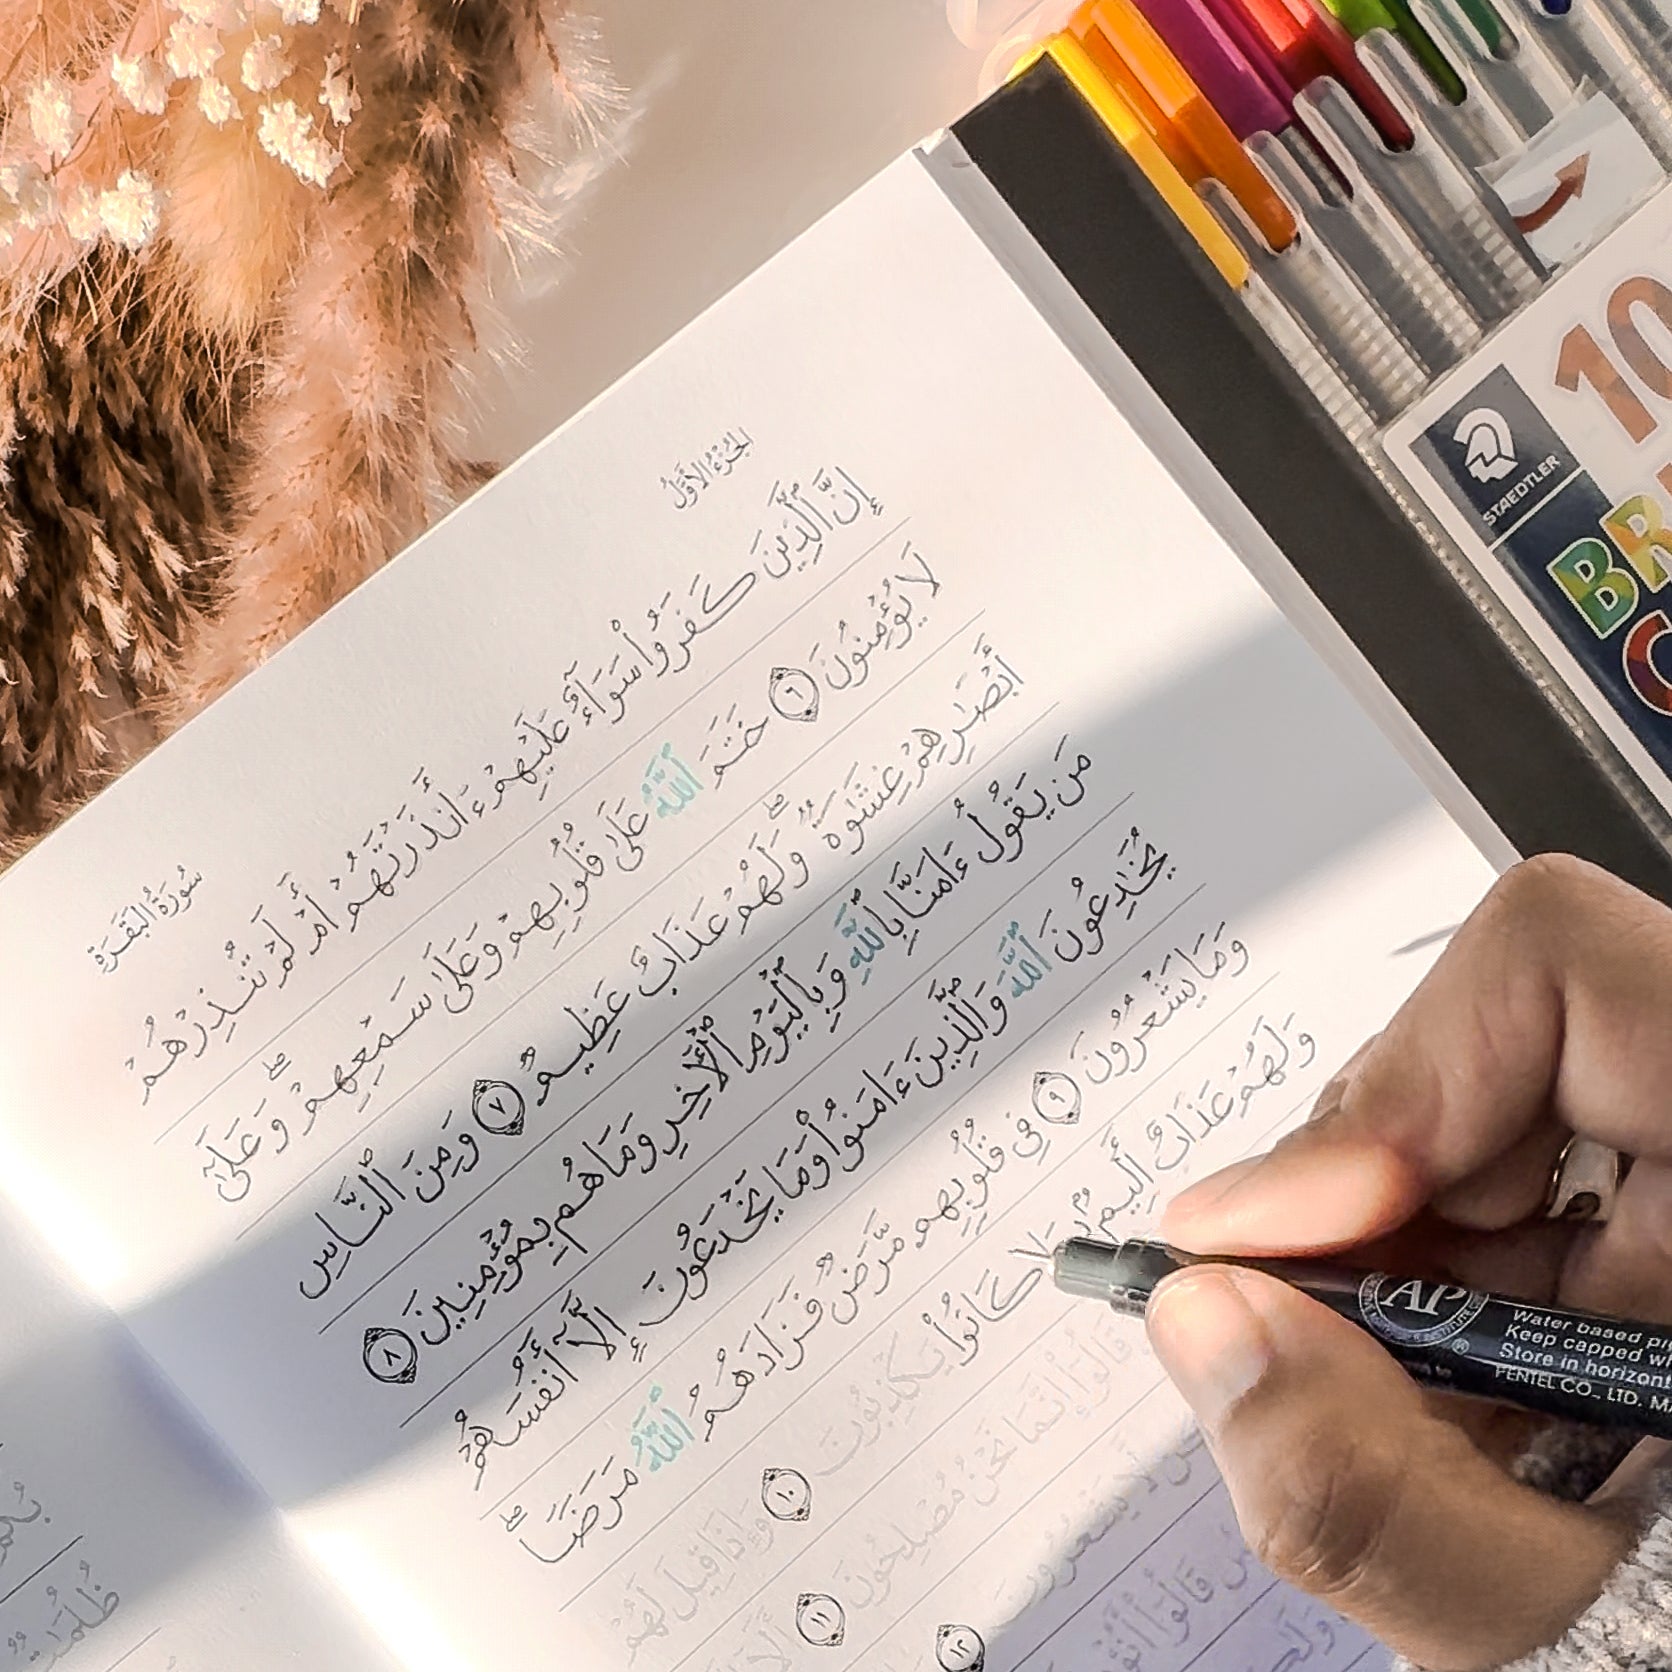 الجُزْءُ الأَوَّلُ
سُورَةُ البَقَرَةِ
إِنَّ ٱلَّذِينَ كَفَرُوا۟ سَوَآءٌ عَلَيْهِمْ ءَأَنذَرْتَهُمْ أَمْ لَمْ تُنذِرْهُمْ
لَا يُؤْمِنُونَ ٦ خَتَمَ ٱللَّهُ عَلَىٰ قُلُوبِهِمْ وَعَلَىٰ سَمْعِهِمْ ۖ وَعَلَىٰٓ
أَبْصَـٰرِهِمْ غِشَـٰوَةٌ ۖ وَلَهُمْ عَذَابٌ عَظِيمٌ ٧ وَمِنَ ٱلنَّاسِ
مَن يَقُولُ ءَامَنَّا بِٱللَّهِ وَبِٱلْيَوْمِ ٱلْـَٔاخِرِ وَمَا هُم بِمُؤْمِنِينَ ٨
يُخَـٰدِعُونَ ٱللَّهَ وَٱلَّذِينَ ءَامَنُوا۟ وَمَا يَخْدَعُونَ إِلَّآ أَنفُسَهُمْ
وَمَا يَشْعُرُونَ ٩ فِى قُلُوبِهِم مَّرَضٌ فَزَادَهُمُ ٱللَّهُ مَرَضًا ۖ
وَلَهُمْ عَذَابٌ أَلِيمٌۢ بِمَا كَانُوا۟ يَكْذِبُونَ ١٠ وَإِذَا قِيلَ لَهُمْ
قَالُوٓا۟ إِنَّمَا نَحْنُ مُصْلِحُونَ ١١
لَّا يَشْعُرُونَ ١٢
10
BR
STAEDTLER
AP
Water based
Keep capped
Store in horizont
PENTEL CO., LTD.